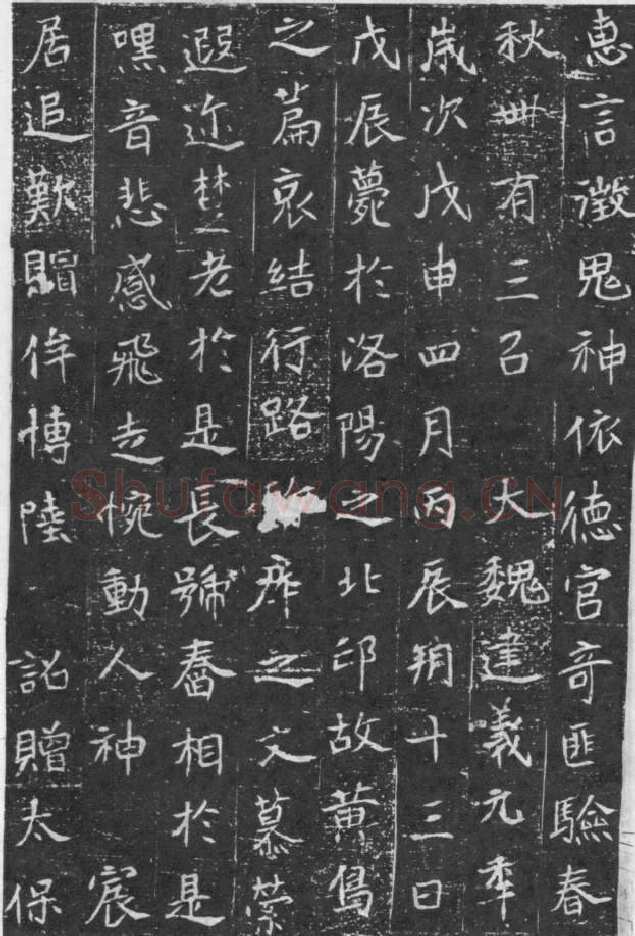 惠言徵鬼神依德官奇匪驗春
秋卌有三以大魏建義元年
歲次戊申四月丙辰朔十三日
戊辰薨於洛陽之北邙故黄鳥
之篇哀結行路瘁之文慕縈
遐迩楚老於是長號舂相於是
嘿音悲感飛走惋動人神宸
居追歎賵侔博陸詔贈太保
Shufawang.CN